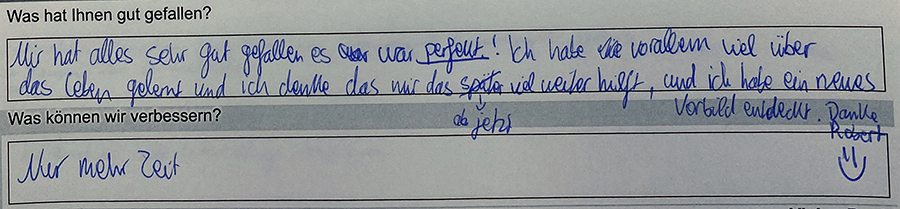 Was hat Ihnen gut gefallen?
Mir hat alles sehr gut gefallen es war perfekt! Ich habe vorallem viel über
das Leben gelernt und ich denke das mir das später viel weiter hilft, und ich habe ein neues
Vorbild entdeckt. Danke
Robert
ab jetzt
Was können wir verbessern?
Nur mehr Zeit